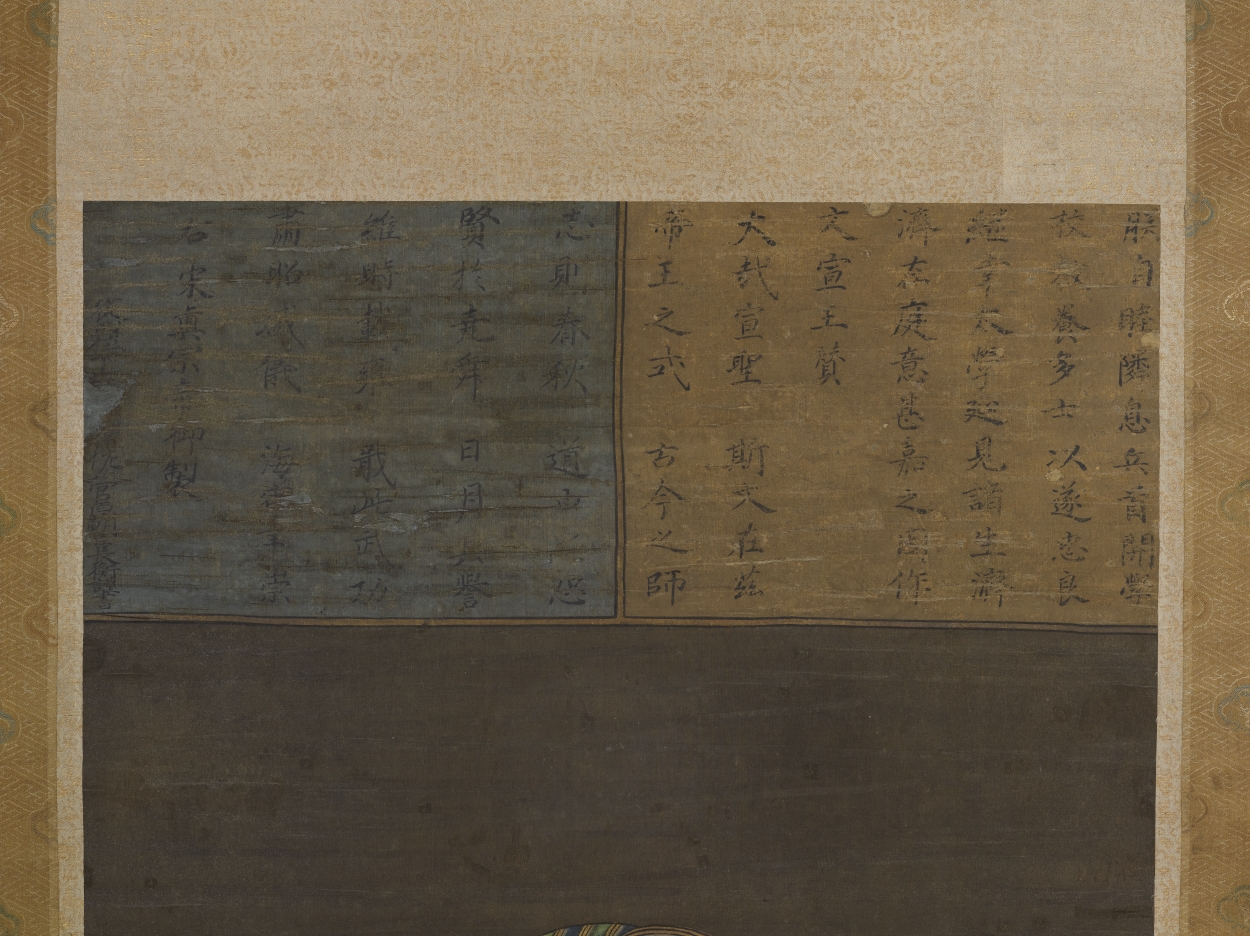 朕自睦隣息兵首開學
校教養多士以遂忠良
繼幸太學延見諸生濟
濟在庭意甚嘉之因作
文宣王贊
大哉宣聖 斯文在茲
帝王之式 古今之師
志則春秋 道由忠恕
賢於堯舜 日月其譽
維時載雍 戢此武功
肅昭威儀 海宇聿崇
右宋真宗 御製